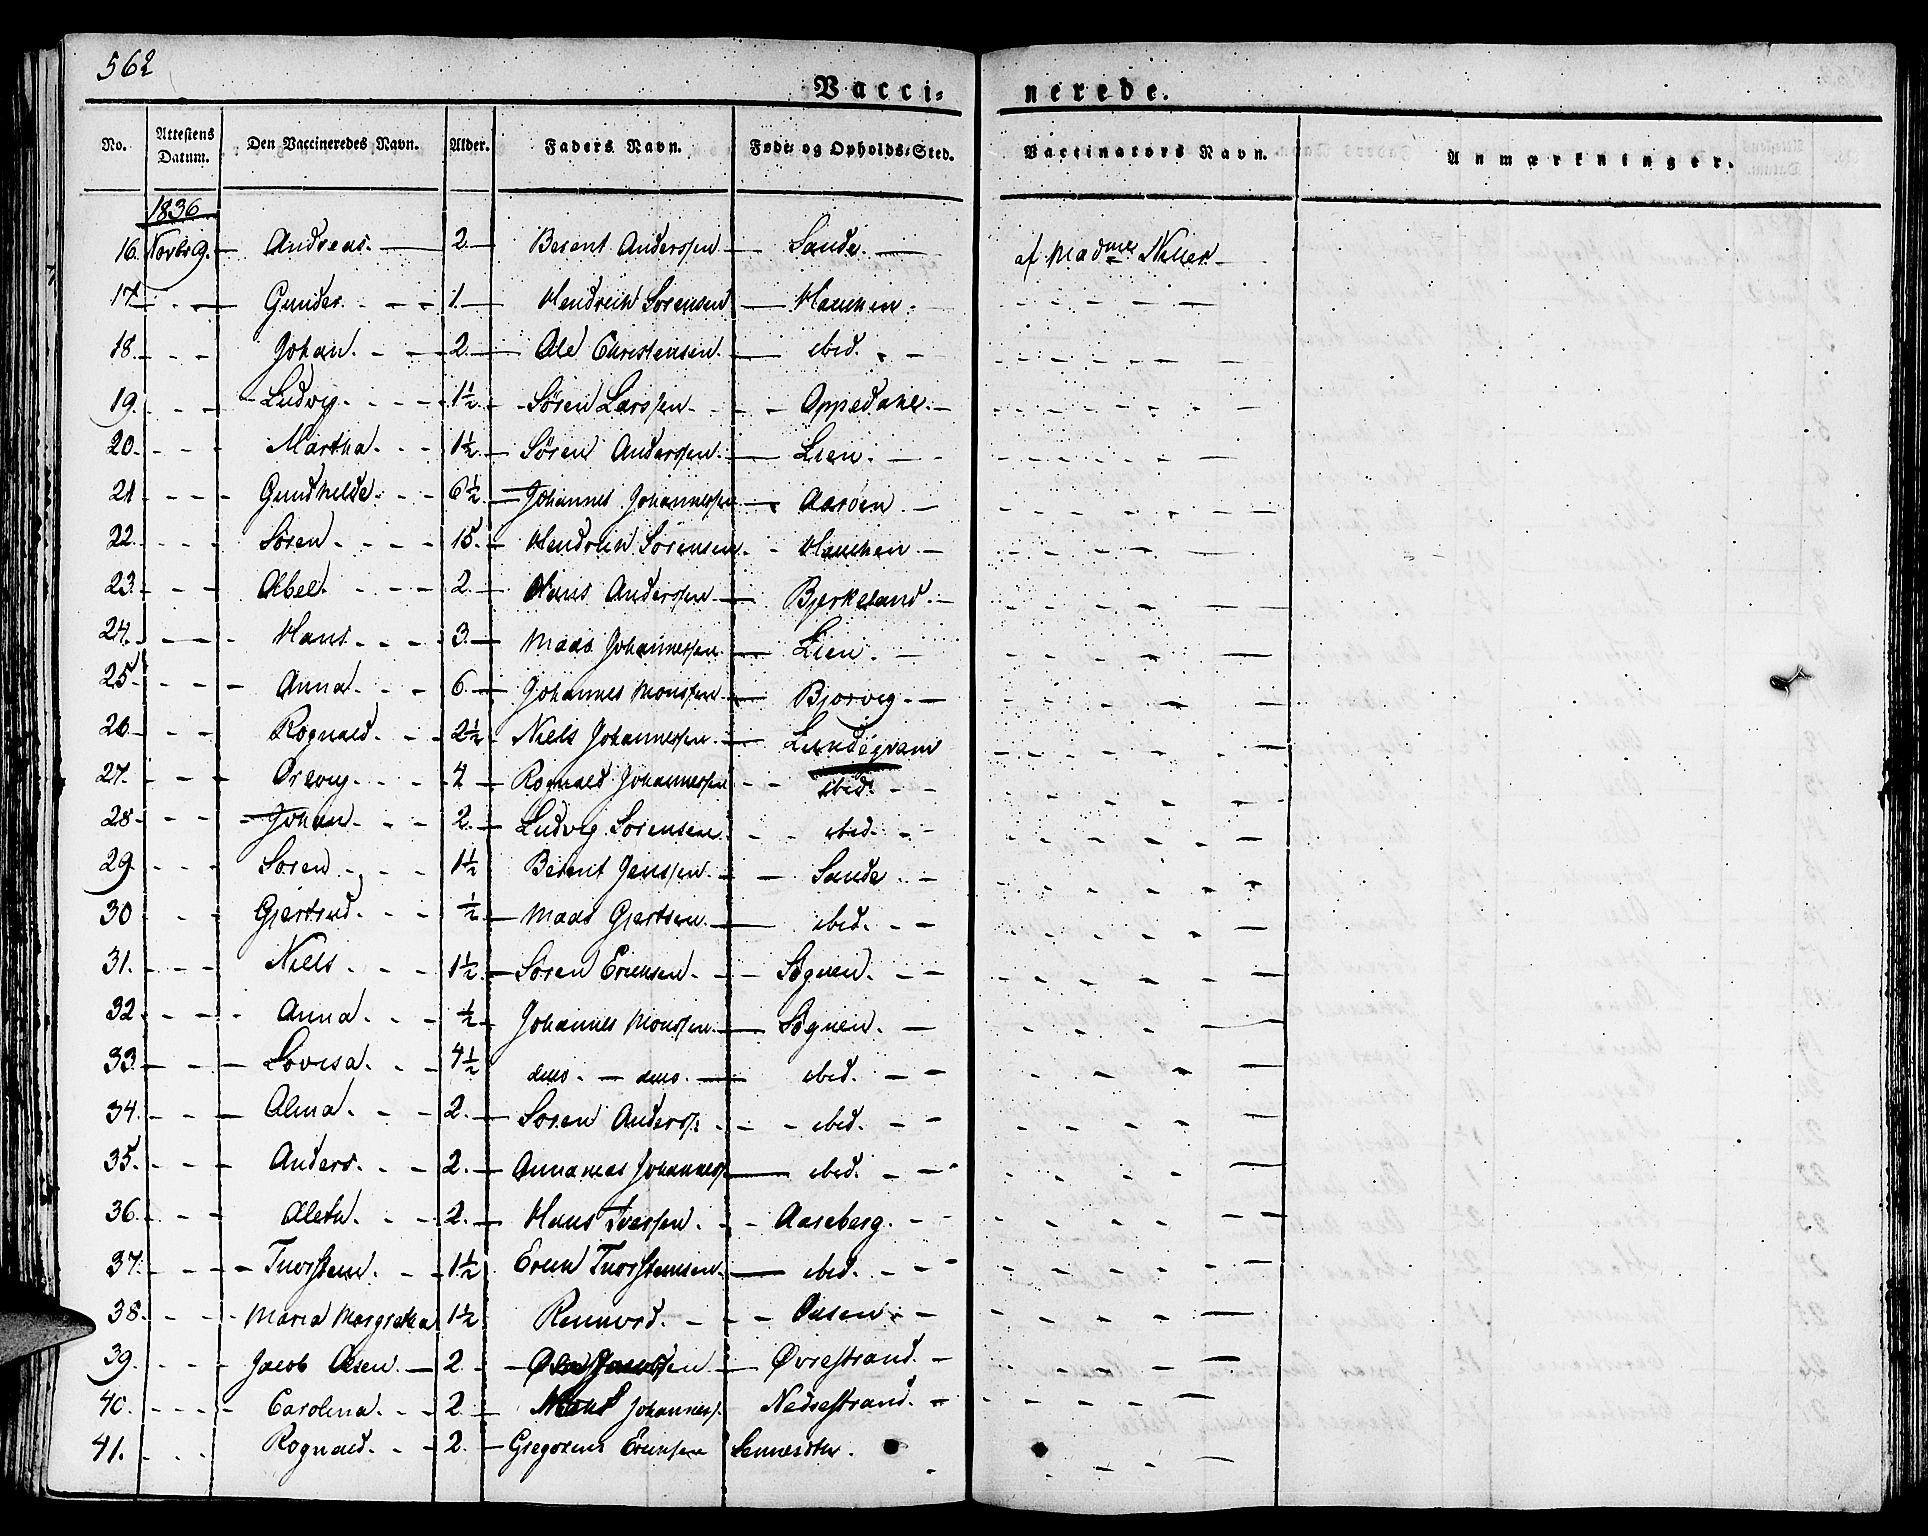 562
Vacci- nerede.
No. Attestens Datum. Den Vaccineredes Navn. Alder. Faders Navn. Føde- og Opholds-Sted. Vaccinators Navn. Anmærkninger.
1836
16. Novbr 9. — Andreas. — 2. — Berent Anderssen — Sande. — af Madme
17 - - — Gunder. - - - 1. — Hendrich Sørensen — Hauchen. - - - - - —
18. - - - Johan. - - - 2. — Ole Christensen. — ibid. - - - - - - - —
19. - - - Ludvig. - - - 1½. - Søren Larssen. - - - Oppedahl. — - - - - - —
20. - - - Martha. - - 1½. — Søren Anderssen. — Lien. — - - - - - - —
21 - - - - Gundhilde. - - 6½. — Johannes Johannessen — Aarøen. — - - - - - —
22. - - - Søren. - - - - 15. — Hendrich Sørensen. - - Hauchen. — - - - - - —
23. - - - Abel. - - - - 2. — Hans Anderssen — Bjerkeland. — - - - - - —
24. — — - Hans. - - - 3. — Mads Johannessen. — Lien. — - - - - - —
25. - - - Anna. - - - 6. — Johannes Monssen — Bjorvig. — - - - - - —
26. - - - Rognald. - - 2½. — Niels Johannessen. — - - - - - —
27. - - - - - - 4 — Rognald Johannessen - - ibid. - - - - - - - —
28. - - - Johan. - - - 2. — Ludvig Sørensen. - - ibid. - - - - - - - —
29. - - - Søren. - - - 1½ Berent Jenssen. - — Sande. - - - - - - - —
30 - - - Gjertrud. - - - ½ — Mads Gjertsen. — ibid. - - - - - - - —
31. - - - Niels. - - - 1½. — Søren Ericksen. - - Sognen. - - - - - - - —
32 - - - - Anna. - - - ½ — Johannes Monssen. — Sognen. — - - - - - —
33. — - - - Lovisa. - - 4½ dito. — dito. — ibid. - - - - - - - —
34. - - — Alma. - - - 2. — Søren Anders/: - - ibid. - - - - - - - —
35. - - - Anders. - - - 2. — Johanness/ — ibid. - - - - - - - —
36. - - - Aleth. - - - 2. — Hans Iverssen. - - Aareberg. - - - - - - - —
37. - - - Thorstein. - - 1½ Erick Thorsteinsen. — ibid. - - - - - - - —
38. - - - Maria Margretha 1½ - - - - - - - - - - —
39. - - - Jacob Olsen. — 2. — - Øvrestrand. — - - - - - —
40. - - - Carolina. - - 2. — Johanness/. Nedrestrand. — - - - - - —
41. - - - Rognald. - - 2. — Gregorius Ericksen - - - - - —